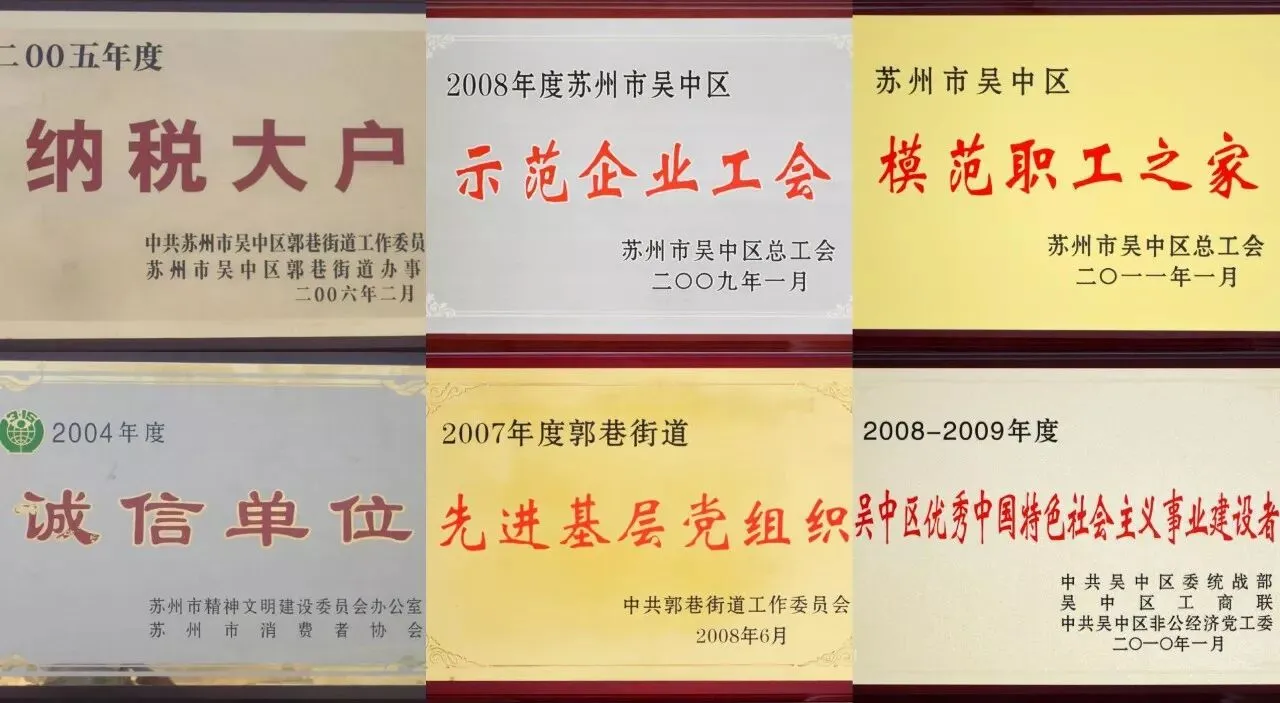 二00五年度
纳税大户
中共苏州市吴中区郭巷街道工作委员
苏州市吴中区郭巷街道办事
二00六年二月
2008年度苏州市吴中区
示范企业工会
苏州市吴中区总工会
二〇〇九年一月
苏州市吴中区
模范职工之家
苏州市吴中区总工会
二〇一一年一月
3·15
2004年度
诚信单位
苏州市精神文明建设委员会办公室
苏州市消费者协会
2007年度郭巷街道
先进基层党组织
中共郭巷街道工作委员会
2008年6月
2008-2009年度
吴中区优秀中国特色社会主义事业建设者
中共吴中区委统战部
吴中区工商联
中共吴中区非公经济党工委
二〇一〇年一月